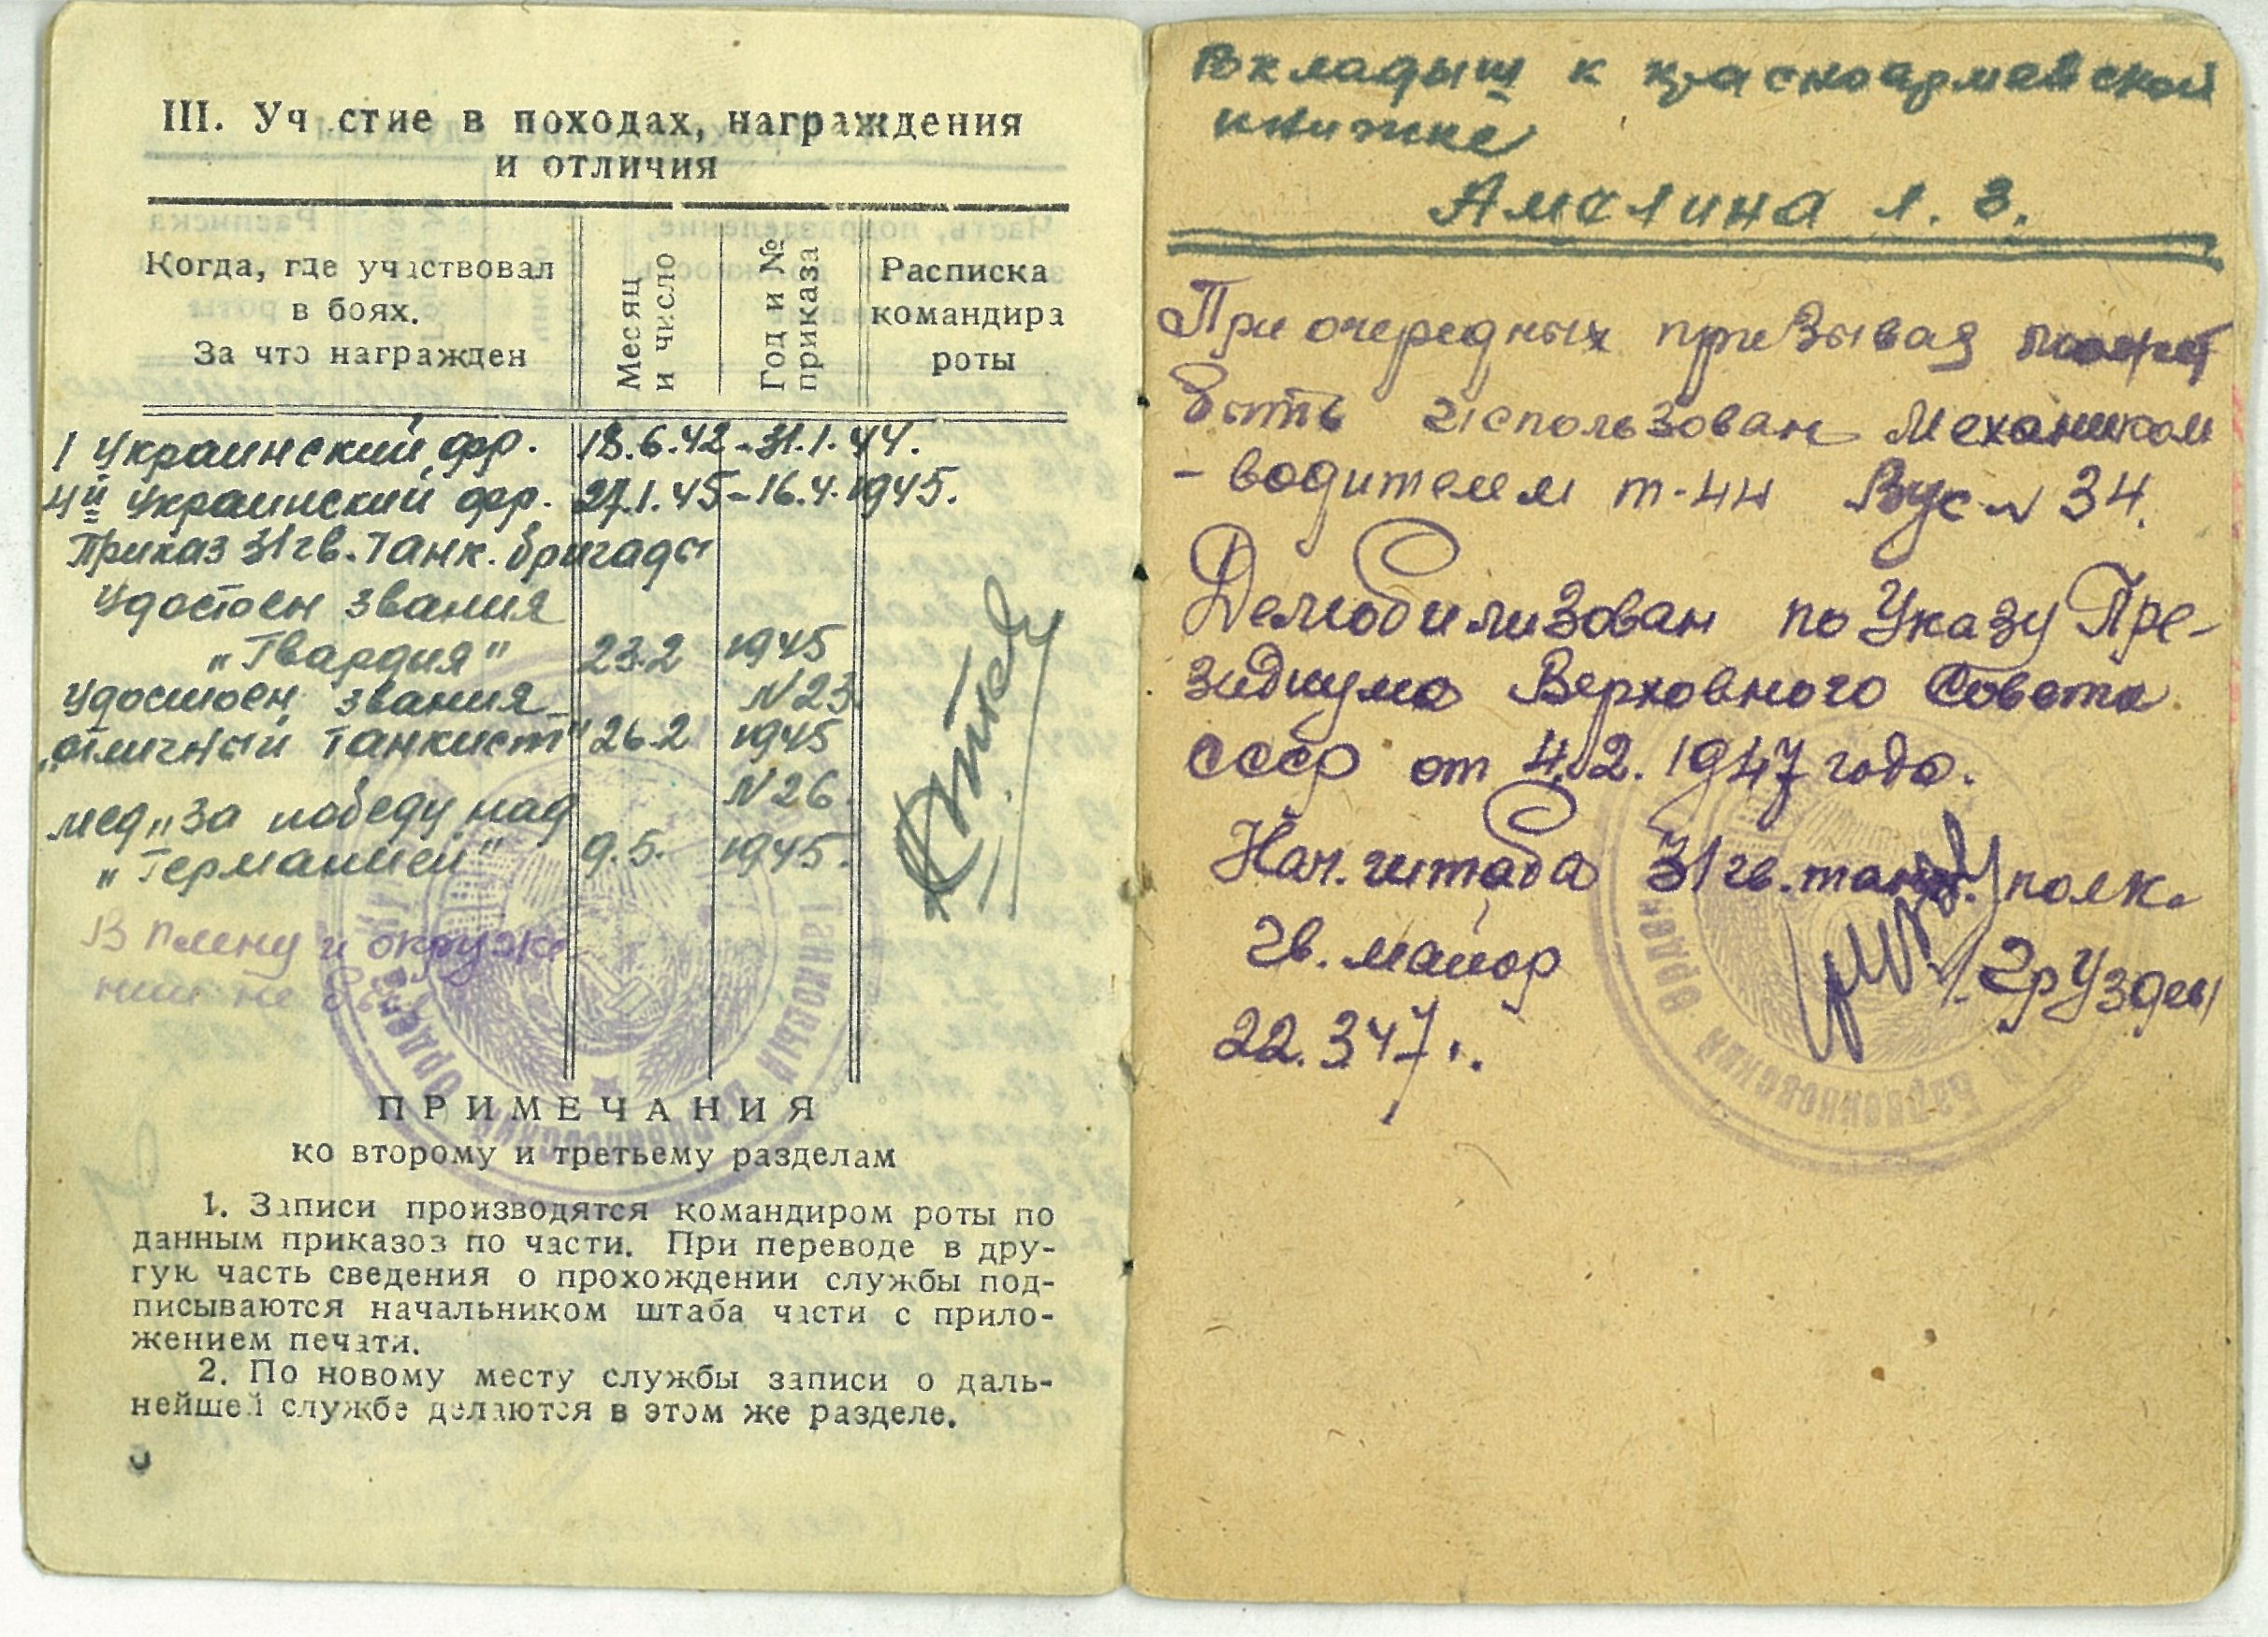 III. Уч стие в походах, награждения
и отличия
Когда, где участвовал
в боях.
За что награжден
Месяц
и число
Год и №
приказа
Расписка
командира
роты
1 Украинский фр. 18.6.42 - 31.1.44.
4й Украинский фр. 27.1.45 - 16.4.1945.
Приказ 31 гв. Танк. бригады
Удостоен звания
„Гвардия" 23.2 1945
N 23
Удостоен звания
„отличный танкист" 26.2 1945
N 26.
мед „за победу над
„Германией" 9.5. 1945.
В плену и окруже-
нии не был
ПРИМЕЧАНИЯ
ко второму и третьему разделам
1. Записи производятся командиром роты по
данным приказов по части. При переводе в дру-
гую часть сведения о прохождении службы под-
писываются начальником штаба части с прило-
жением печати.
2. По новому месту службы записи о даль-
нейшей службе делаются в этом же разделе.
Вкладыш к красноармейской
книжке
Амелина Л. З.
При очередных призывах может
быть использован механиком
- водителем т-44 Вус N 34.
Демобилизован по Указу Пре-
зидиума Верховного Совета
СССР от 4.2.1947 года.
Нач. штаба 31 гв. танк. полк.
гв. майор
Груздев
22.3 47 г.